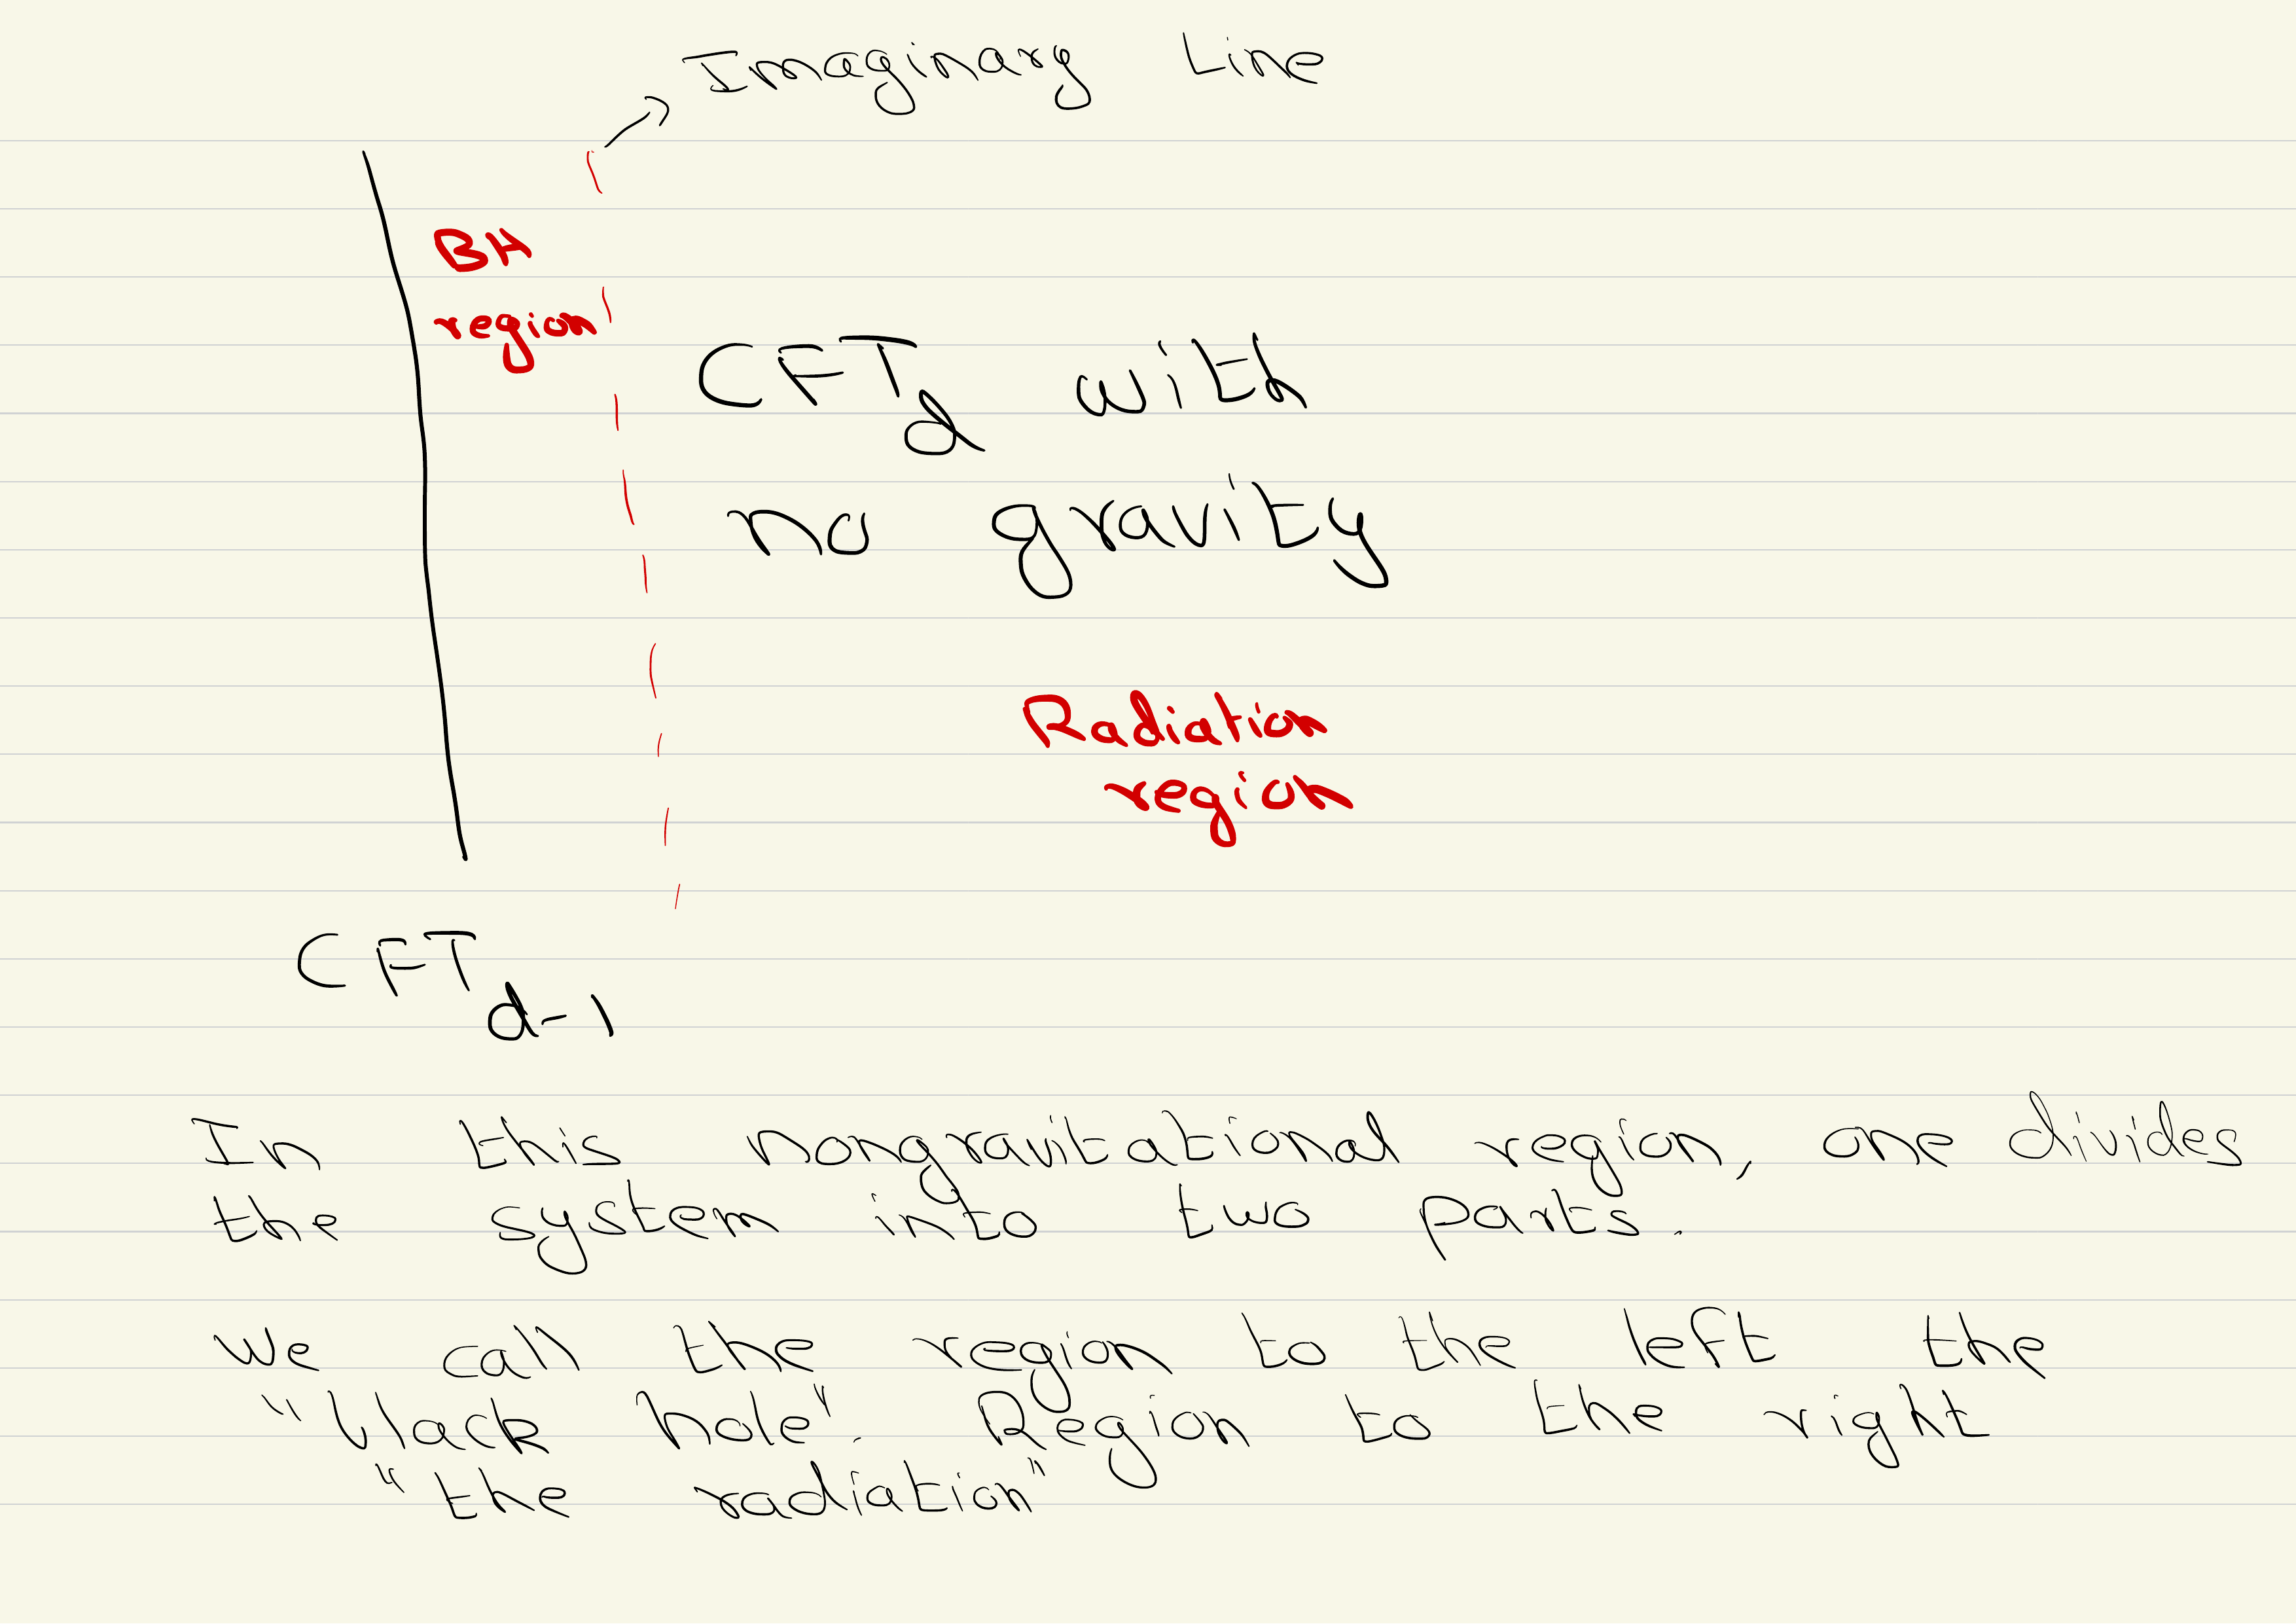 Imaginary Line
BH
region
CFT_d with
no gravity
Radiation
region
CFT_d-1
In this nongravitational region, one divides
the system into two parts.
We call the region to the left the
"black hole". Region to the right
"the radiation"